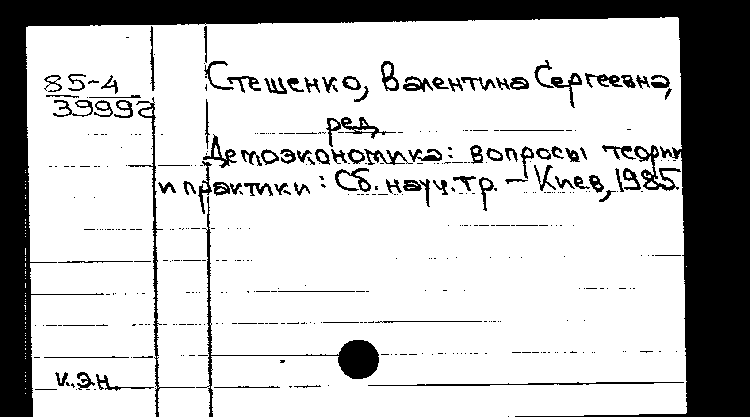 85-4
39992
Стешенко, Валентина Сергеевна,
ред.
Демоэкономика: вопросы теории
и практики: Сб. науч. тр. – Киев, 1985.
к.э.н.